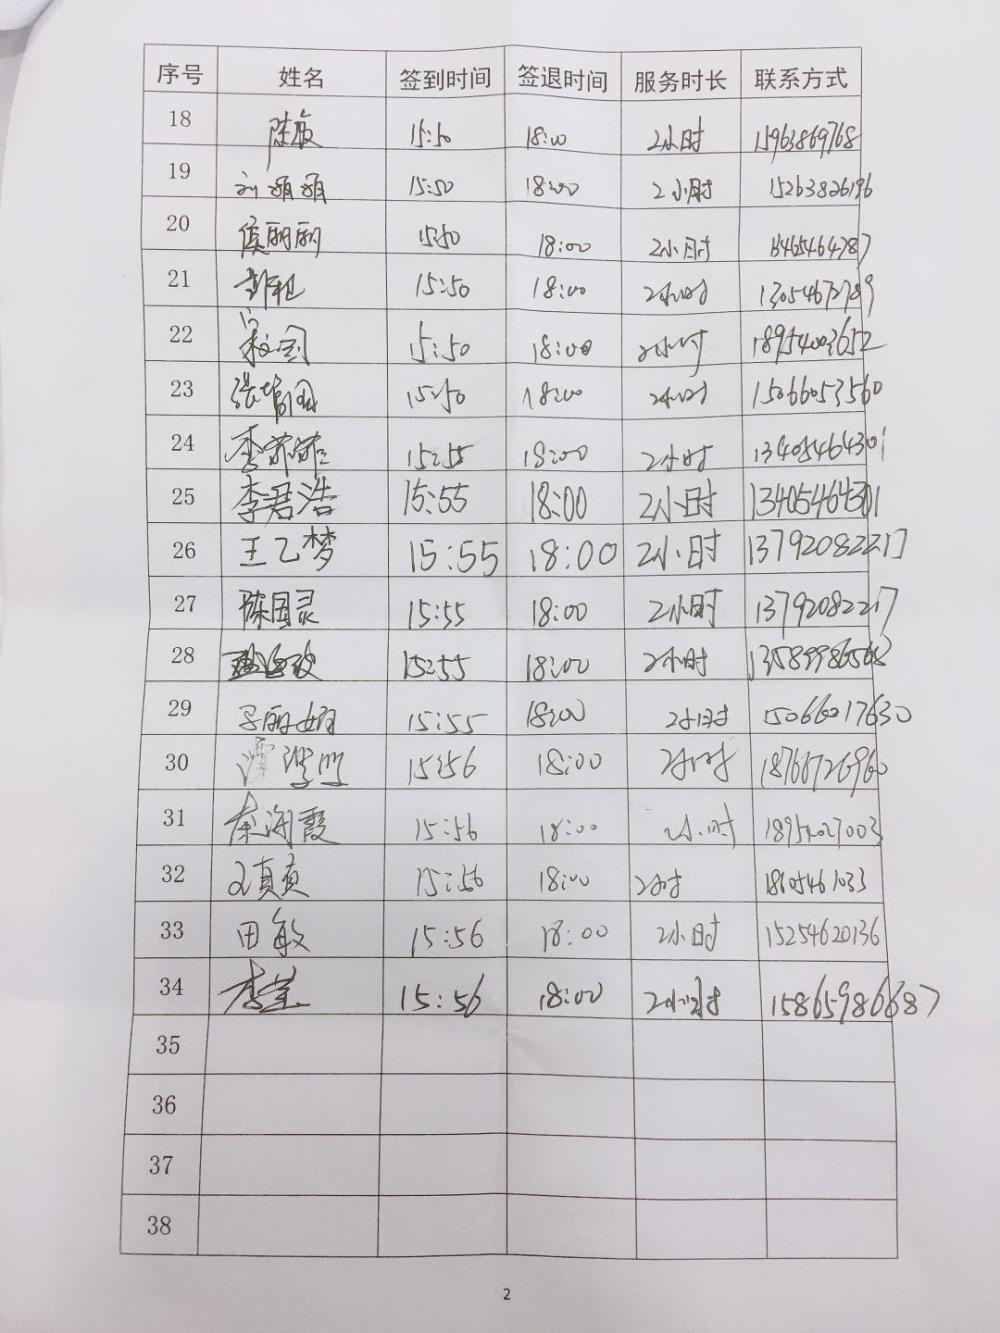 序号 姓名 签到时间 签退时间 服务时长 联系方式
18 陈敏 15:50 18:00 2小时 15963869768
19 刘娟娟 15:50 18:00 2小时 15263826196
20 侯丽丽 15:50 18:00 2小时
21 15:50 18:00 2小时 13054672789
22 15:50 18:00 2小时 18954003652
23 15:50 18:00 2小时 15066053560
24 15:55 18:00 2小时 13405464301
25 李君浩 15:55 18:00 2小时 13405464301
26 王乙梦 15:55 18:00 2小时 13792082217
27 陈国灵 15:55 18:00 2小时 13792082217
28 15:55 18:00 2小时 13589986568
29 15:55 18:00 2小时 15066017630
30 15:56 18:00 2小时 18766726960
31 秦海霞 15:56 18:00 2小时 18954027003
32 15:56 18:00 2小时
33 田敏 15:56 18:00 2小时 15254620136
34 15:56 18:00 2小时 15865986687
35
36
37
38
2